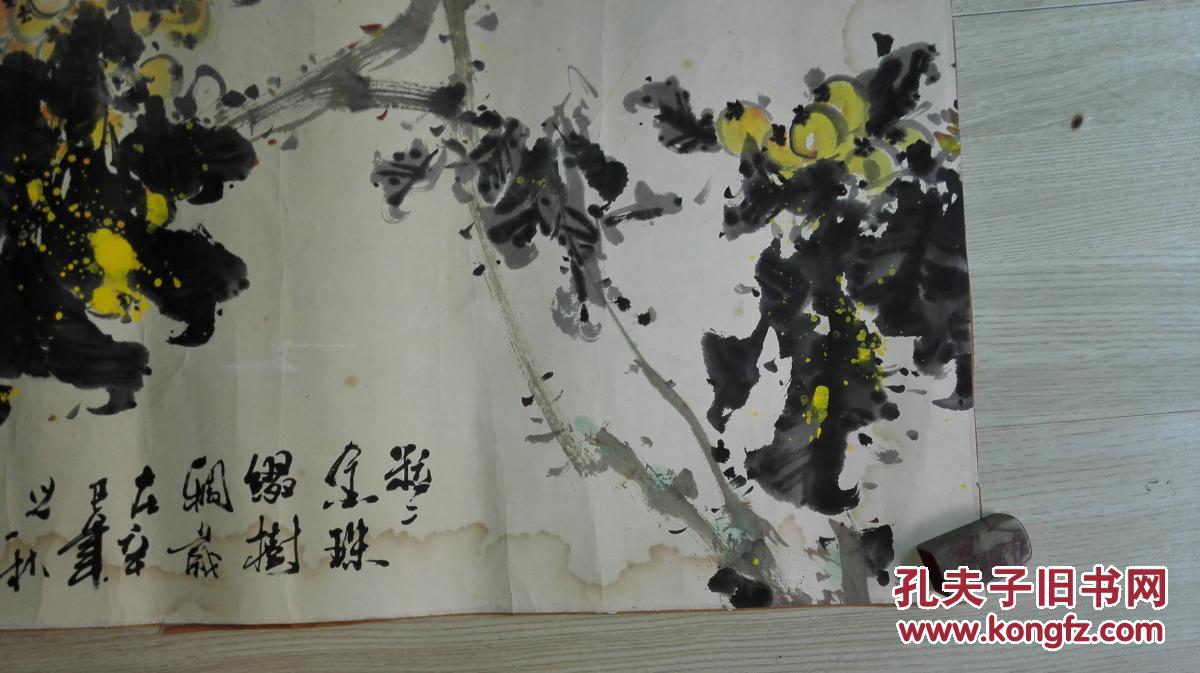 粒々
金珠
綴樹
稠歲
在辛
巳年
之秋
孔夫子旧书网
www.kongfz.com